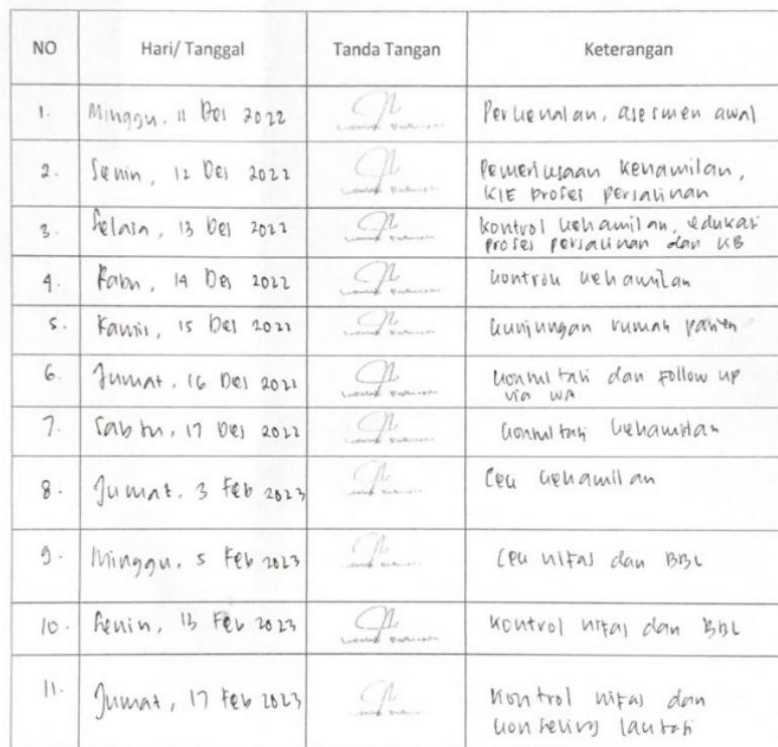 NO Hari/ Tanggal Tanda Tangan Keterangan
1. Minggu, 11 Des 2022 Perkenalan, asesmen awal
2. Senin, 12 Des 2022 Pemeriksaan kehamilan,
KIE proses persalinan
3. Selasa, 13 Des 2022 kontrol kehamilan, edukasi
proses persalinan dan KB
4. Rabu, 14 Des 2022 kontrol kehamilan
5. Kamis, 15 Des 2022 kunjungan rumah pasien
6. Jumat, 16 Des 2022 konsultasi dan Follow up
via WA
7. Sabtu, 17 Des 2022 konsultasi kehamilan
8. Jumat, 3 Feb 2023 Cek kehamilan
9. Minggu, 5 Feb 2023 Cek nifas dan BBL
10. Senin, 13 Feb 2023 kontrol nifas dan BBL
11. Jumat, 17 Feb 2023 kontrol nifas dan
konseling laktasi